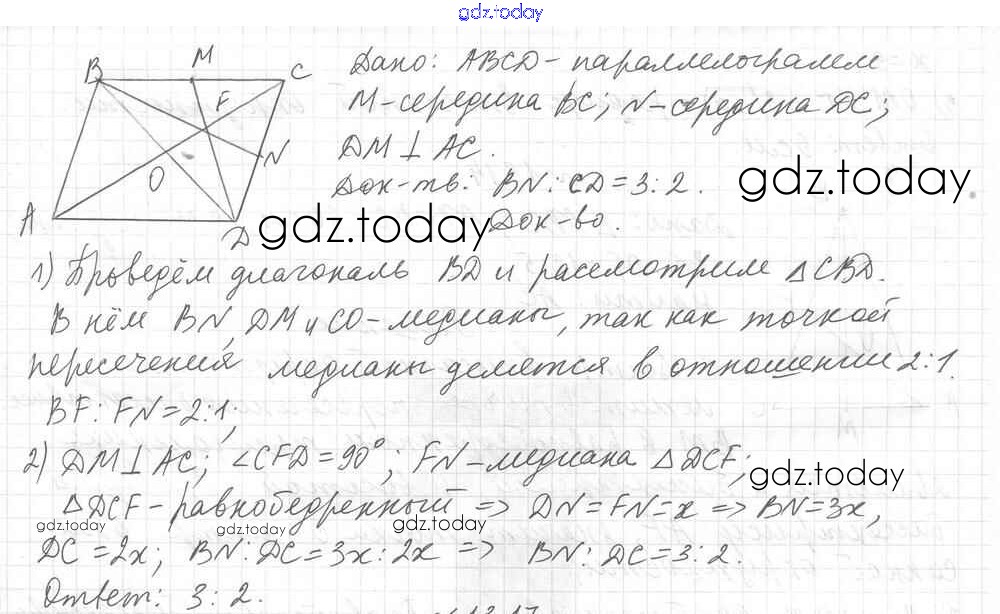 gdz.today
B M C
F
N
O
A D
Дано: ABCD - параллелограмм
M - середина BC; N - середина DC;
DM ⊥ AC.
Док-ть. BN : CD = 3 : 2.
gdz.today
gdz.today
Док-во.
1) Проведём диагональ BD и рассмотрим △CBD.
В нём BN, DM и CO - медианы, так как точкой
пересечения медианы делятся в отношении 2:1.
BF : FN = 2:1,
2) DM ⊥ AC; ∠CFD = 90°; FN - медиана △DCF;
gdz.today
△DCF - равнобедренный => DN = FN = x => BN = 3x,
gdz.today
gdz.today
gdz.today
DC = 2x; BN : DC = 3x : 2x => BN : DC = 3 : 2.
Ответ: 3 : 2.